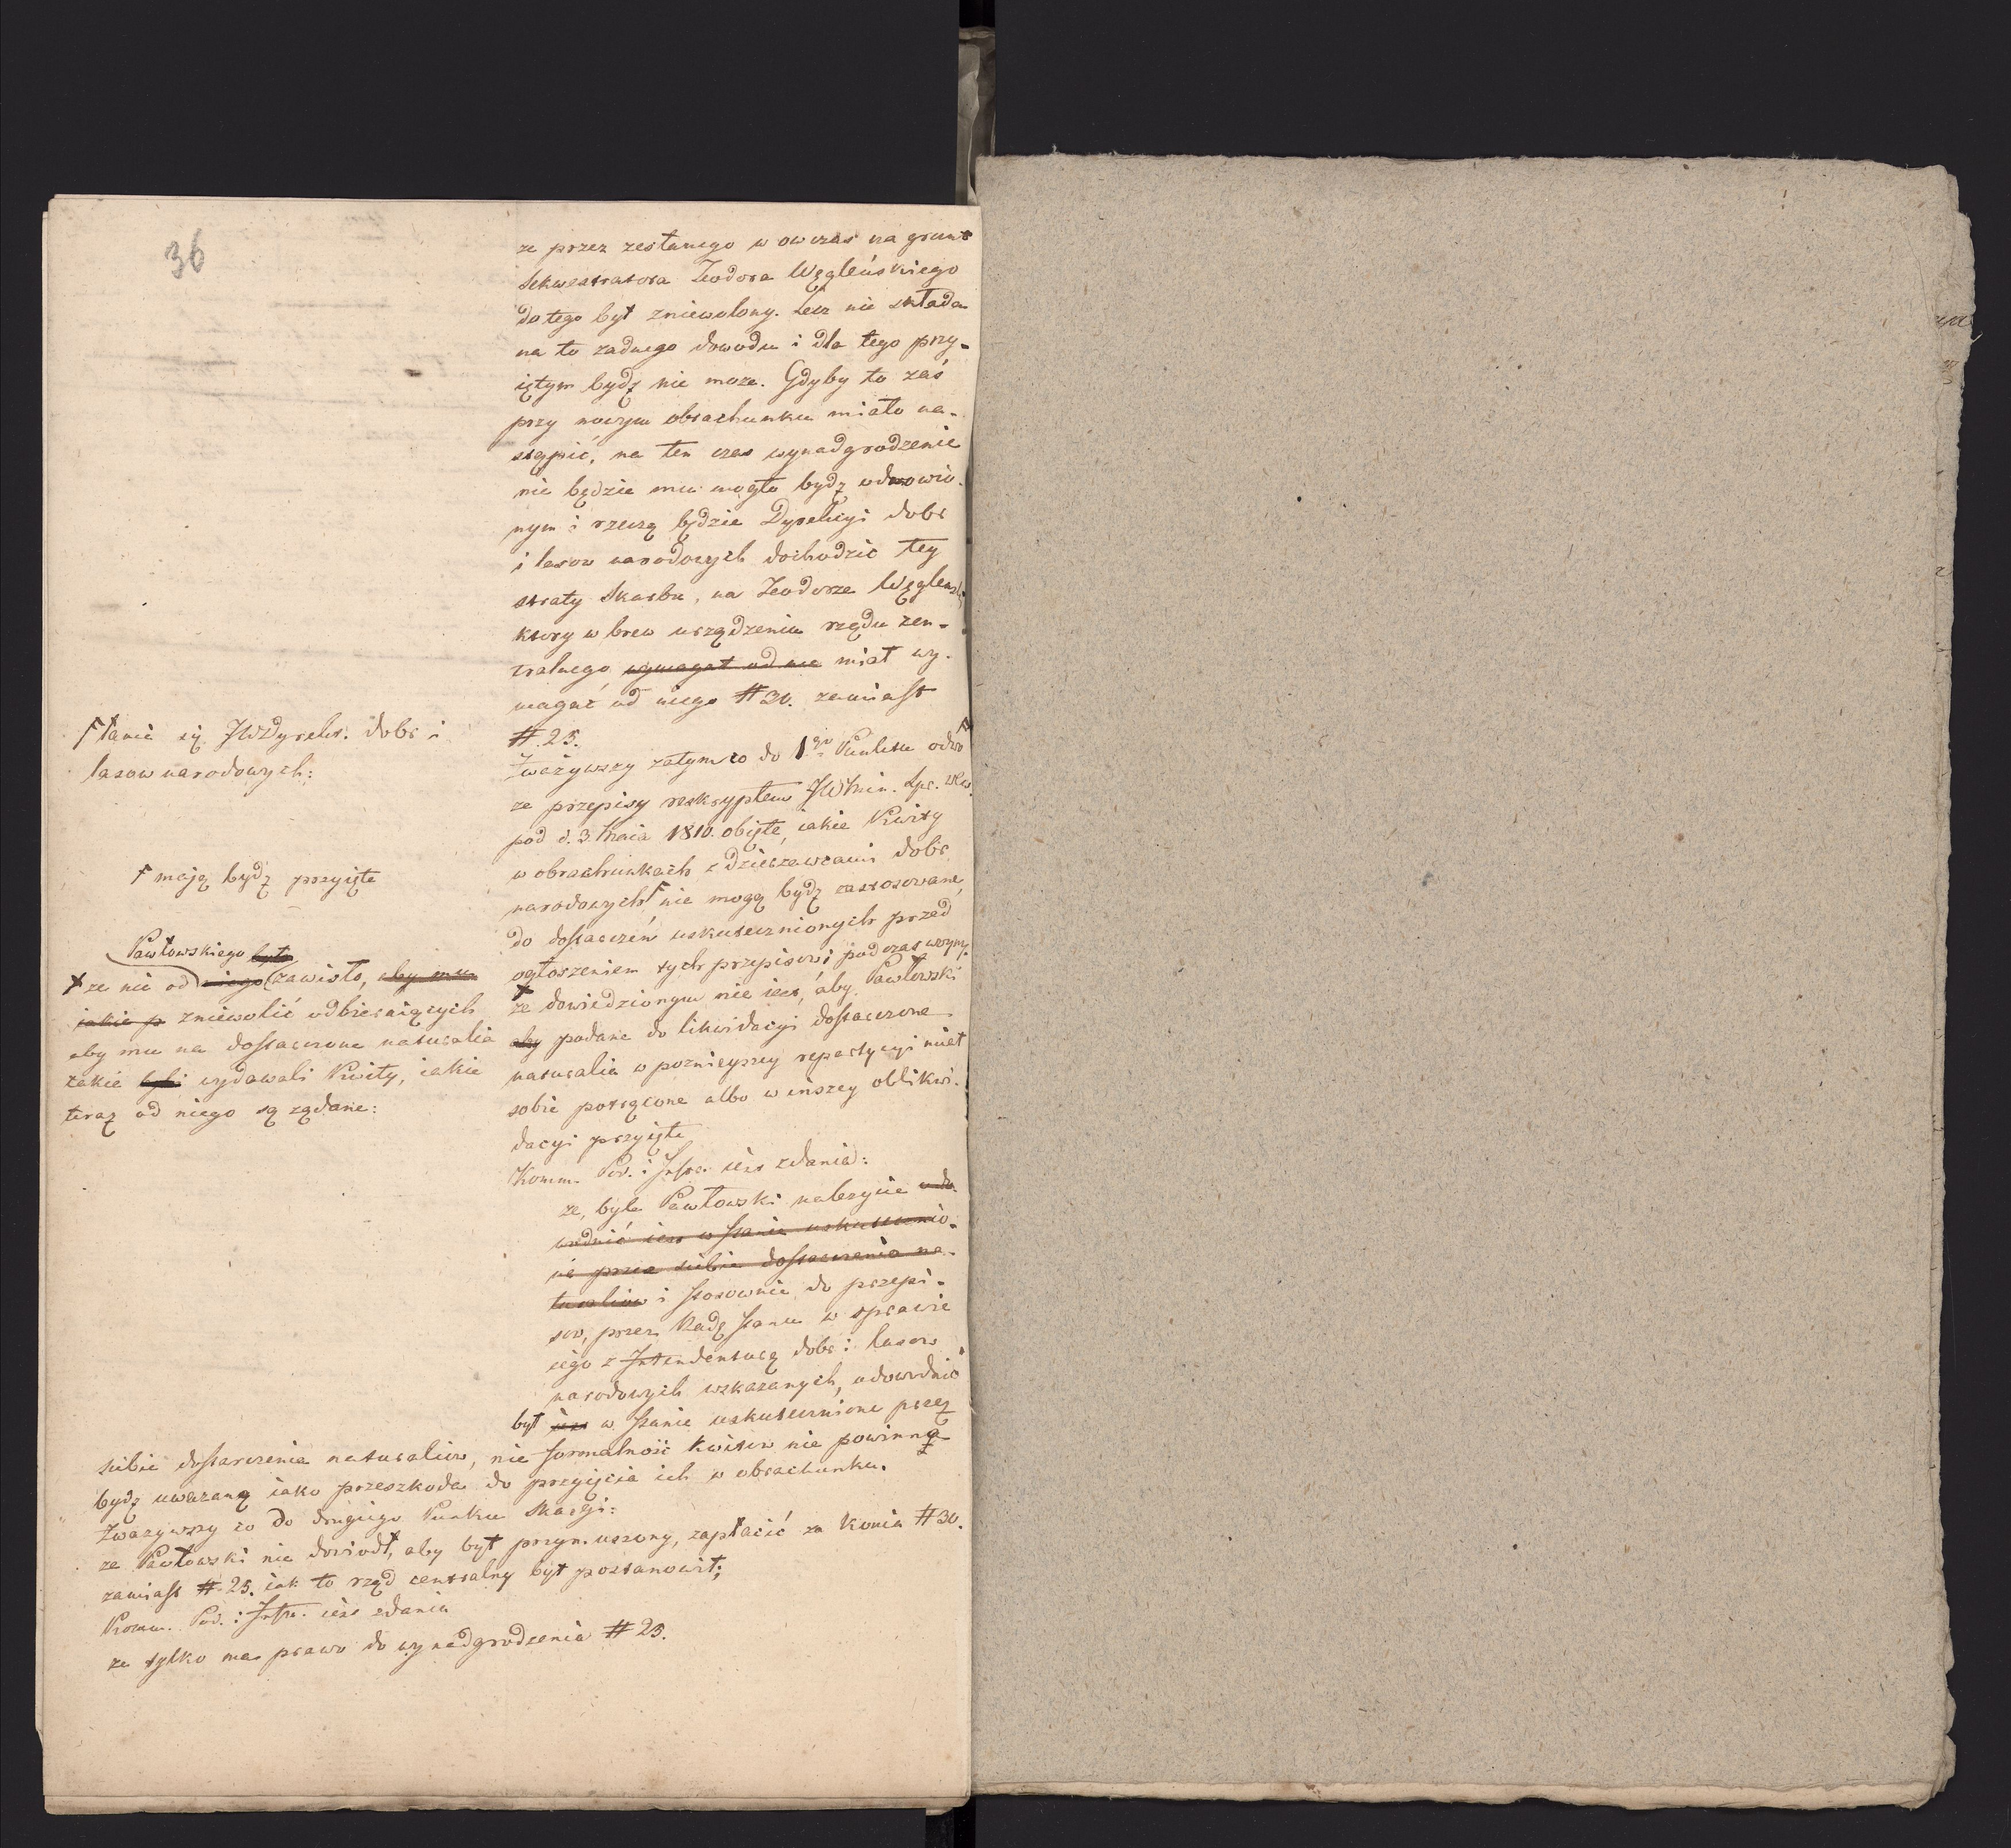 36
ze przez zesłanego w owczas na grunt
Sekwestratora Teodora Węgleńskiego
do tego był zniewolony. Lecz nie składa
na to żadnego dowodu i dla tego przy-
iętym bydź nie może. Gdyby to zaś
przy nowym obrachunku miało na-
stąpić, na ten czas wynadgrodzenie
nie będzie mu mogło bydź odmowio-
nym i rzeczą będzie Dyrekcyi dobr
i lasow narodowych dochodzic tey
straty Skarbu, na Teodorze Węgleńs
ktory w brew urządzeniu rządu cen-
tralnego wymagał od nie miał wy-
magać od niego # 30. zamiast
# 25.
Zważywszy zatym co do 1go Punktu odwo
ze przepisy reskryptem JW Min. Spr. Wew.
pod d. 3. Maia 1810. obięte, iakie Kwity
w obrachunkach z Dzierzawcami dobr
narodowych nie mogą bydź zastosowane
do dostarczeń uskutecznionych przed
ogłoszeniem tych przepisow i podczas woyny.
ze dowiedzionym nie iest, aby Pawłowski
aby podane do likwidacyi dostarczone
naturalia w poznieyszey repartycyi miał
sobie potrącone albo w inszey oblikwi-
dacyi przyięte
Komm. Pod. i Instr. iest zdania:
ze, byle Pawłowski należycie udo-
wodnić iest w stanie uskutecznio-
ne przez siebie dostarczenia na-
turaliow i stosownie do przepi-
sow, przez Radę Stanu w sprawie
iego z Intendenturą dobr i lasow
narodowych wskazanych, udowodnić
był iest w stanie uskutecznione przez
siebie dostarczenia naturaliow, nie formalność kwitow nie powinna
bydź uważaną iako przeszkoda do przyięcia ich w obrachunku.
Zważywszy co do drugiego Punktu Skargi:
ze Pawłowski nie dowiodł, aby był przymuszony, zapłacić za konia # 30.
zamiast # 25. iak to rząd centralny był postanowił;
Komm. Pod. i Instr. iest zdania
ze tylko ma prawo do wynadgrodzenia # 25.
łania się JW Dyrektr. dobr i
lasow narodowych:
maią bydź przyięte
Pawłowskiego było
ze nie od niego zawisło, aby mu
iakie p zniewolić odbieraiących
aby mu na dostarczone naturalia
takie byli wydawali Kwity, iakie
teraz od niego są żądane: